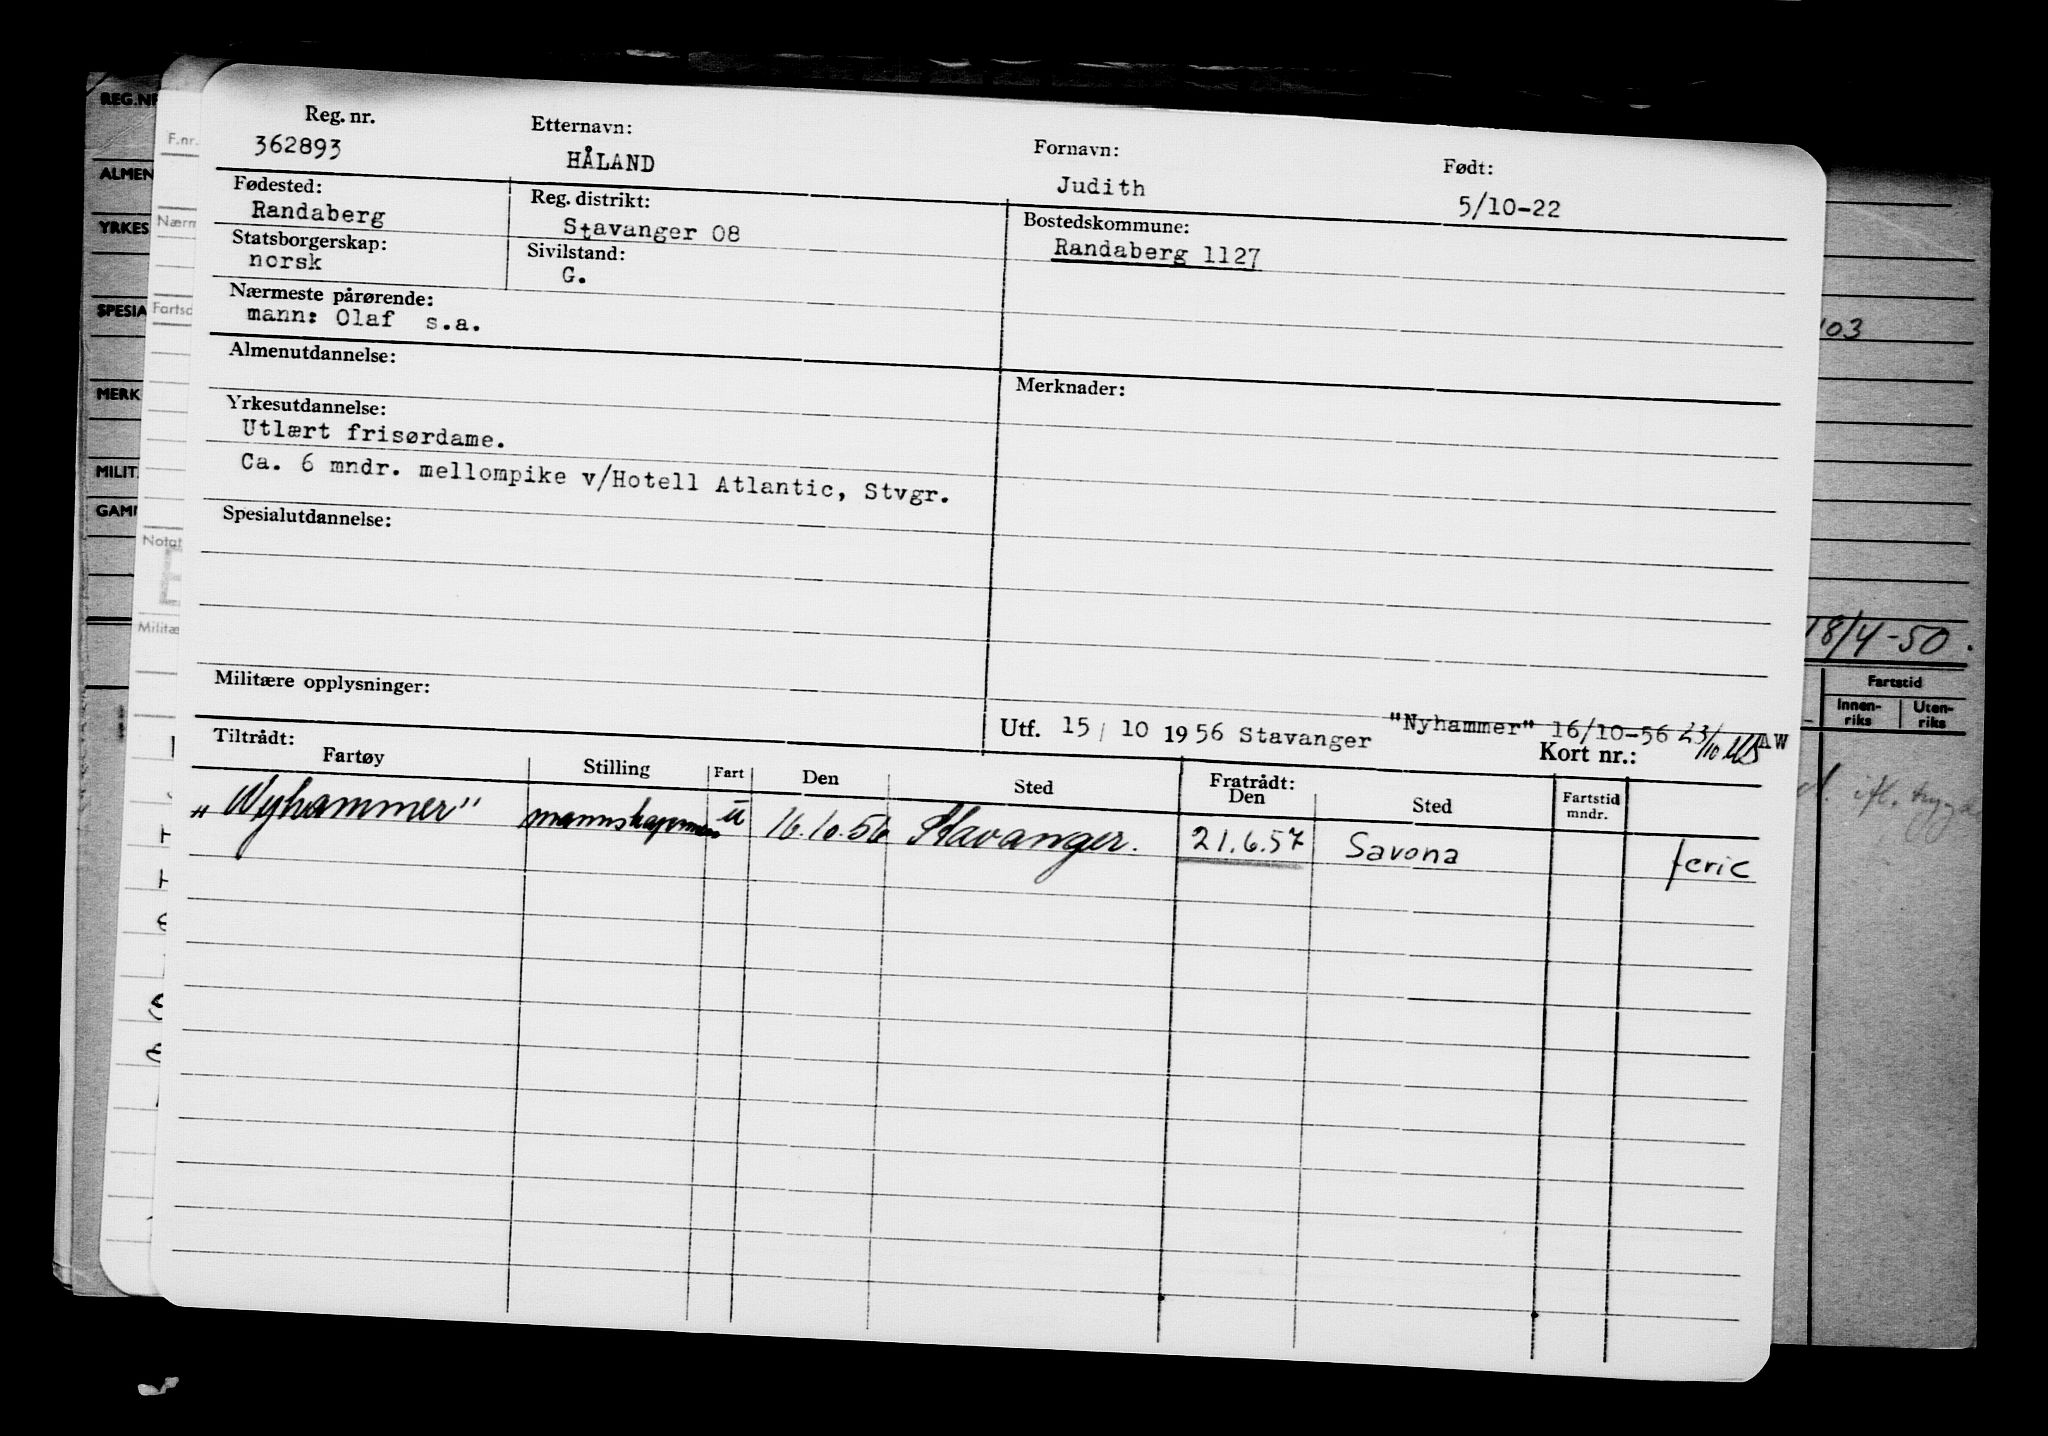 Reg. nr. Etternavn: Fornavn: Født:
362893 HÅLAND Judith 5/10-22
Fødested: Reg. distrikt: Bostedskommune:
Randaberg Stavanger 08 Randaberg 1127
Statsborgerskap: Sivilstand:
norsk G.
Nærmeste pårørende:
mann: Olaf s.a.
Almenutdannelse: Merknader:
Yrkesutdannelse:
Utlært frisørdame.
Ca. 6 mndr. mellompike v/Hotell Atlantic, Stvgr.
Spesialutdannelse:
Militære opplysninger:
Utf. 15/ 10 1956 Stavanger "Nyhammer" 16/10-56 23/10 AW
Tiltrådt: Kort nr.:
Fartøy Stilling Fart Den Sted Fratrådt: Den Sted Fartstid mndr.
"Nyhammer" u 16.10.56 Stavanger. 21.6.57 Savona ferie
REG.NR
ALMEN
YRKES
SPESIA
MERK
MILIT
GAM
F.nr.
Nærm
Fartsd
Notat
Militæ
103
18/4-50.
Fartstid
Innen-riks Uten-riks